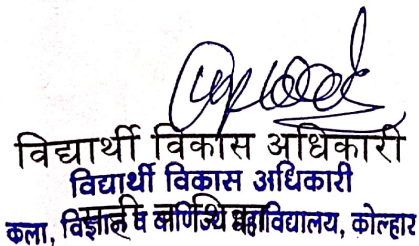 विद्यार्थी विकास अधिकारी
विद्यार्थी विकास अधिकारी
कला, विज्ञान व वाणिज्य महाविद्यालय, कोल्हार